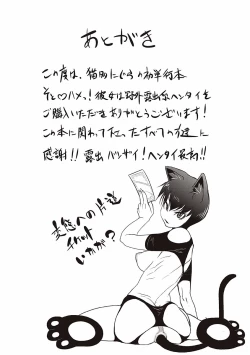 あとがき
この度は、猫田にぐらの初単行本
そとハメっ!彼女は野外露出系ヘンタイを
ご購入いただきありがとうございます!
この本に関わって下さったすべての人達に
感謝!!露出バンザイ!ヘンタイ長寿!!
変態への片道
チケット
いかが?